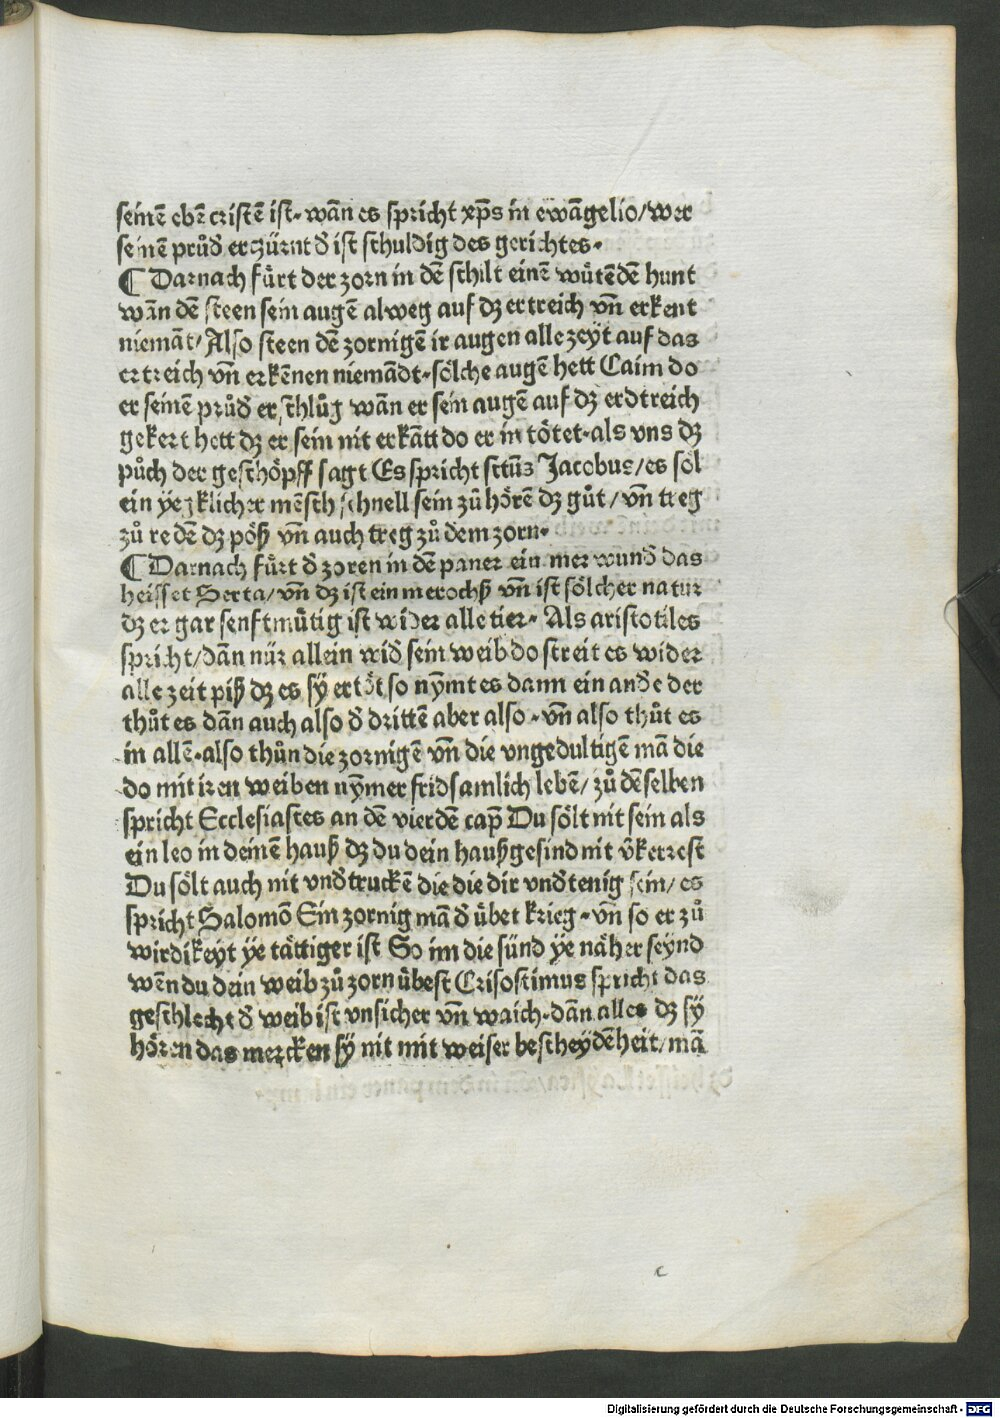 seinē ebē cristē ist· wān es spricht xp̄s in ewāgelio/wer
seinē průd̄ erczürnt d̄ ist schuldig des gerichtes·
¶ Darnach fůrt der zorn in dē schilt einē wůtēdē hunt
wān dē steen sein augē alweg auf dz ertreich vn̄ erkent
niemāt/ Also steen dē zornigē ir augen alle zeyt auf das
ertreich vn̄ erkēnen niemādt·sölche augē hett Caim do
er seinē průd̄ erschlůg wān er sein augē auf dz erdtreich
gekert hett dz er sein nit erkātt do er in tötet·als vns dz
půch der geschöpff sagt Es spricht sctūs Jacobus/es sol
ein yezklicher mēsch schnell sein zů hörē dz gůt/vn̄ treg
zů redē dz pöß vn̄ auch treg zů dem zorn·
¶ Darnach fůrt d̄ zoren in dē paner ein mer wund̄ das
heisset Serta/vn̄ dz ist ein merochß vn̄ ist sölcher natur
dz er gar senftmütig ist wider alle tier· Als aristotiles
spricht/dān nür allein wid̄ sein weib do streit es wider
alle zeit piß dz es sy ertöt so nȳmt es dann ein andē der
thůt es dān auch also d̄ drittē aber also·vn̄ also thůt es
in allē·also thůn die zornigē vn̄ die vngedultigē mā die
do mit iren weiben nȳmer fridsamlich lebē/zů dēselben
spricht Ecclesiastes an dē vierdē cap̄ Du sölt nit sein als
ein leo in deinē hauß dz du dein haußgesind nit v̄kerrest
Du sölt auch nit vnd̄truckē die die dir vnd̄tenig sein/es
spricht Salomō Ein zornig mā d̄ übet krieg·vn̄ so er zů
wirdikeyt ye tättiger ist So im die sünd ye näher seynd
wēn du dein weib zů zorn übest Crisostimus spricht das
geschlecht d̄ weib ist vnsicher vn̄ waich·dān alles dz sy
hören das mercken sy nit mit weiser bescheydēheit/mā
c
Digitalisierung gefördert durch die Deutsche Forschungsgemeinschaft - DFG